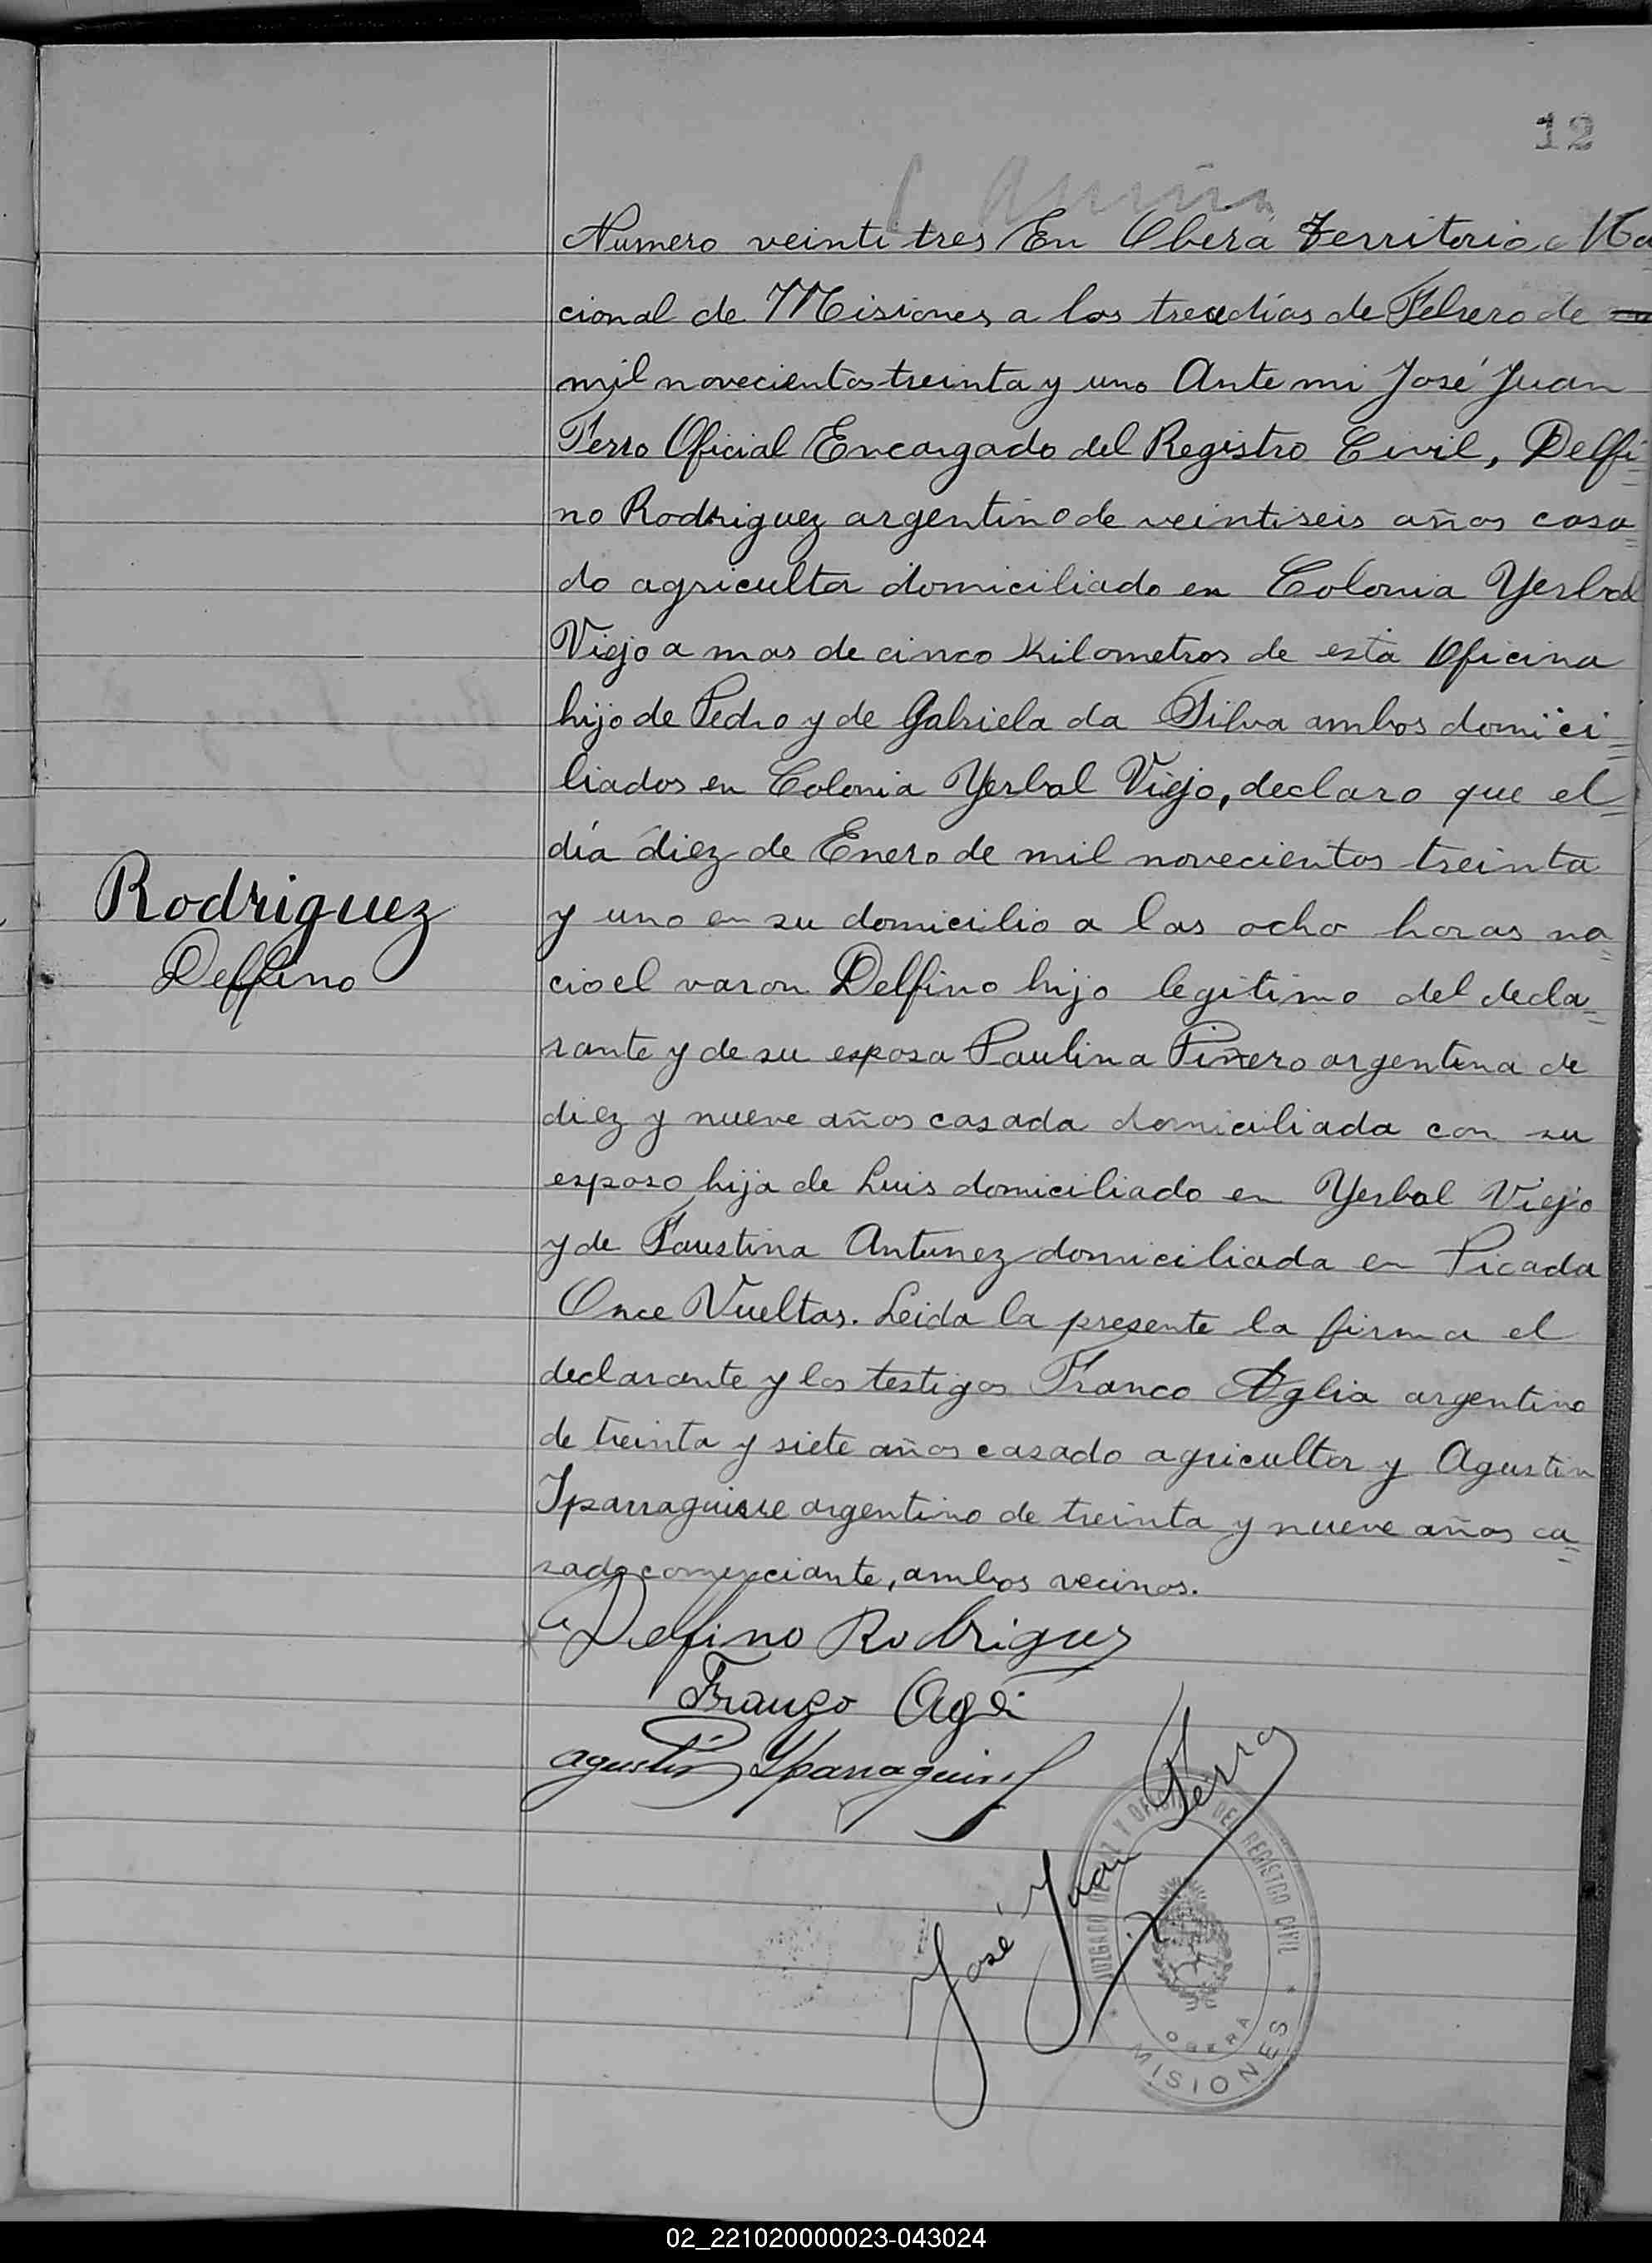 12
Numero veinti tres En Oberá Territorio Na
cional de Misiones a los trece días de Febrero de
mil novecientos treinta y uno Ante mi José Juan
Ferro Oficial Encargado del Registro Civil, Delfi
no Rodriguez argentino de veintiseis años casa
do agricultor domiciliado en Colonia Yerbal
Viejo a mas de cinco Kilometros de esta Oficina
hijo de Pedro y de Gabriela da Silva ambos domici
liados en Colonia Yerbal Viejo, declaro que el
día diez de Enero de mil novecientos treinta
Rodriguez
y uno en su domicilio a las ocho horas na
Delfino
cio el varon Delfino hijo legitimo del decla
rante y de su esposa Paulina Piñero argentina de
diez y nueve años casada domiciliada con su
esposo hija de Luis domiciliado en Yerbal Viejo
y de Faustina Antunez domiciliada en Picada
Once Vueltas. Leida la presente la firma el
declarante y los testigos Franco Aglia argentino
de treinta y siete años casado agricultor y Agustin
Yparraguirre argentino de treinta y nueve años ca
sado comerciante, ambos vecinos.
Delfino Rodriguez
Franco
Agustin Yparraguirre
José Juan Ferro
JUZGADO DE PAZ Y OFICINA DEL REGISTRO CIVIL
OBERA
MISIONES
02_221020000023-043024